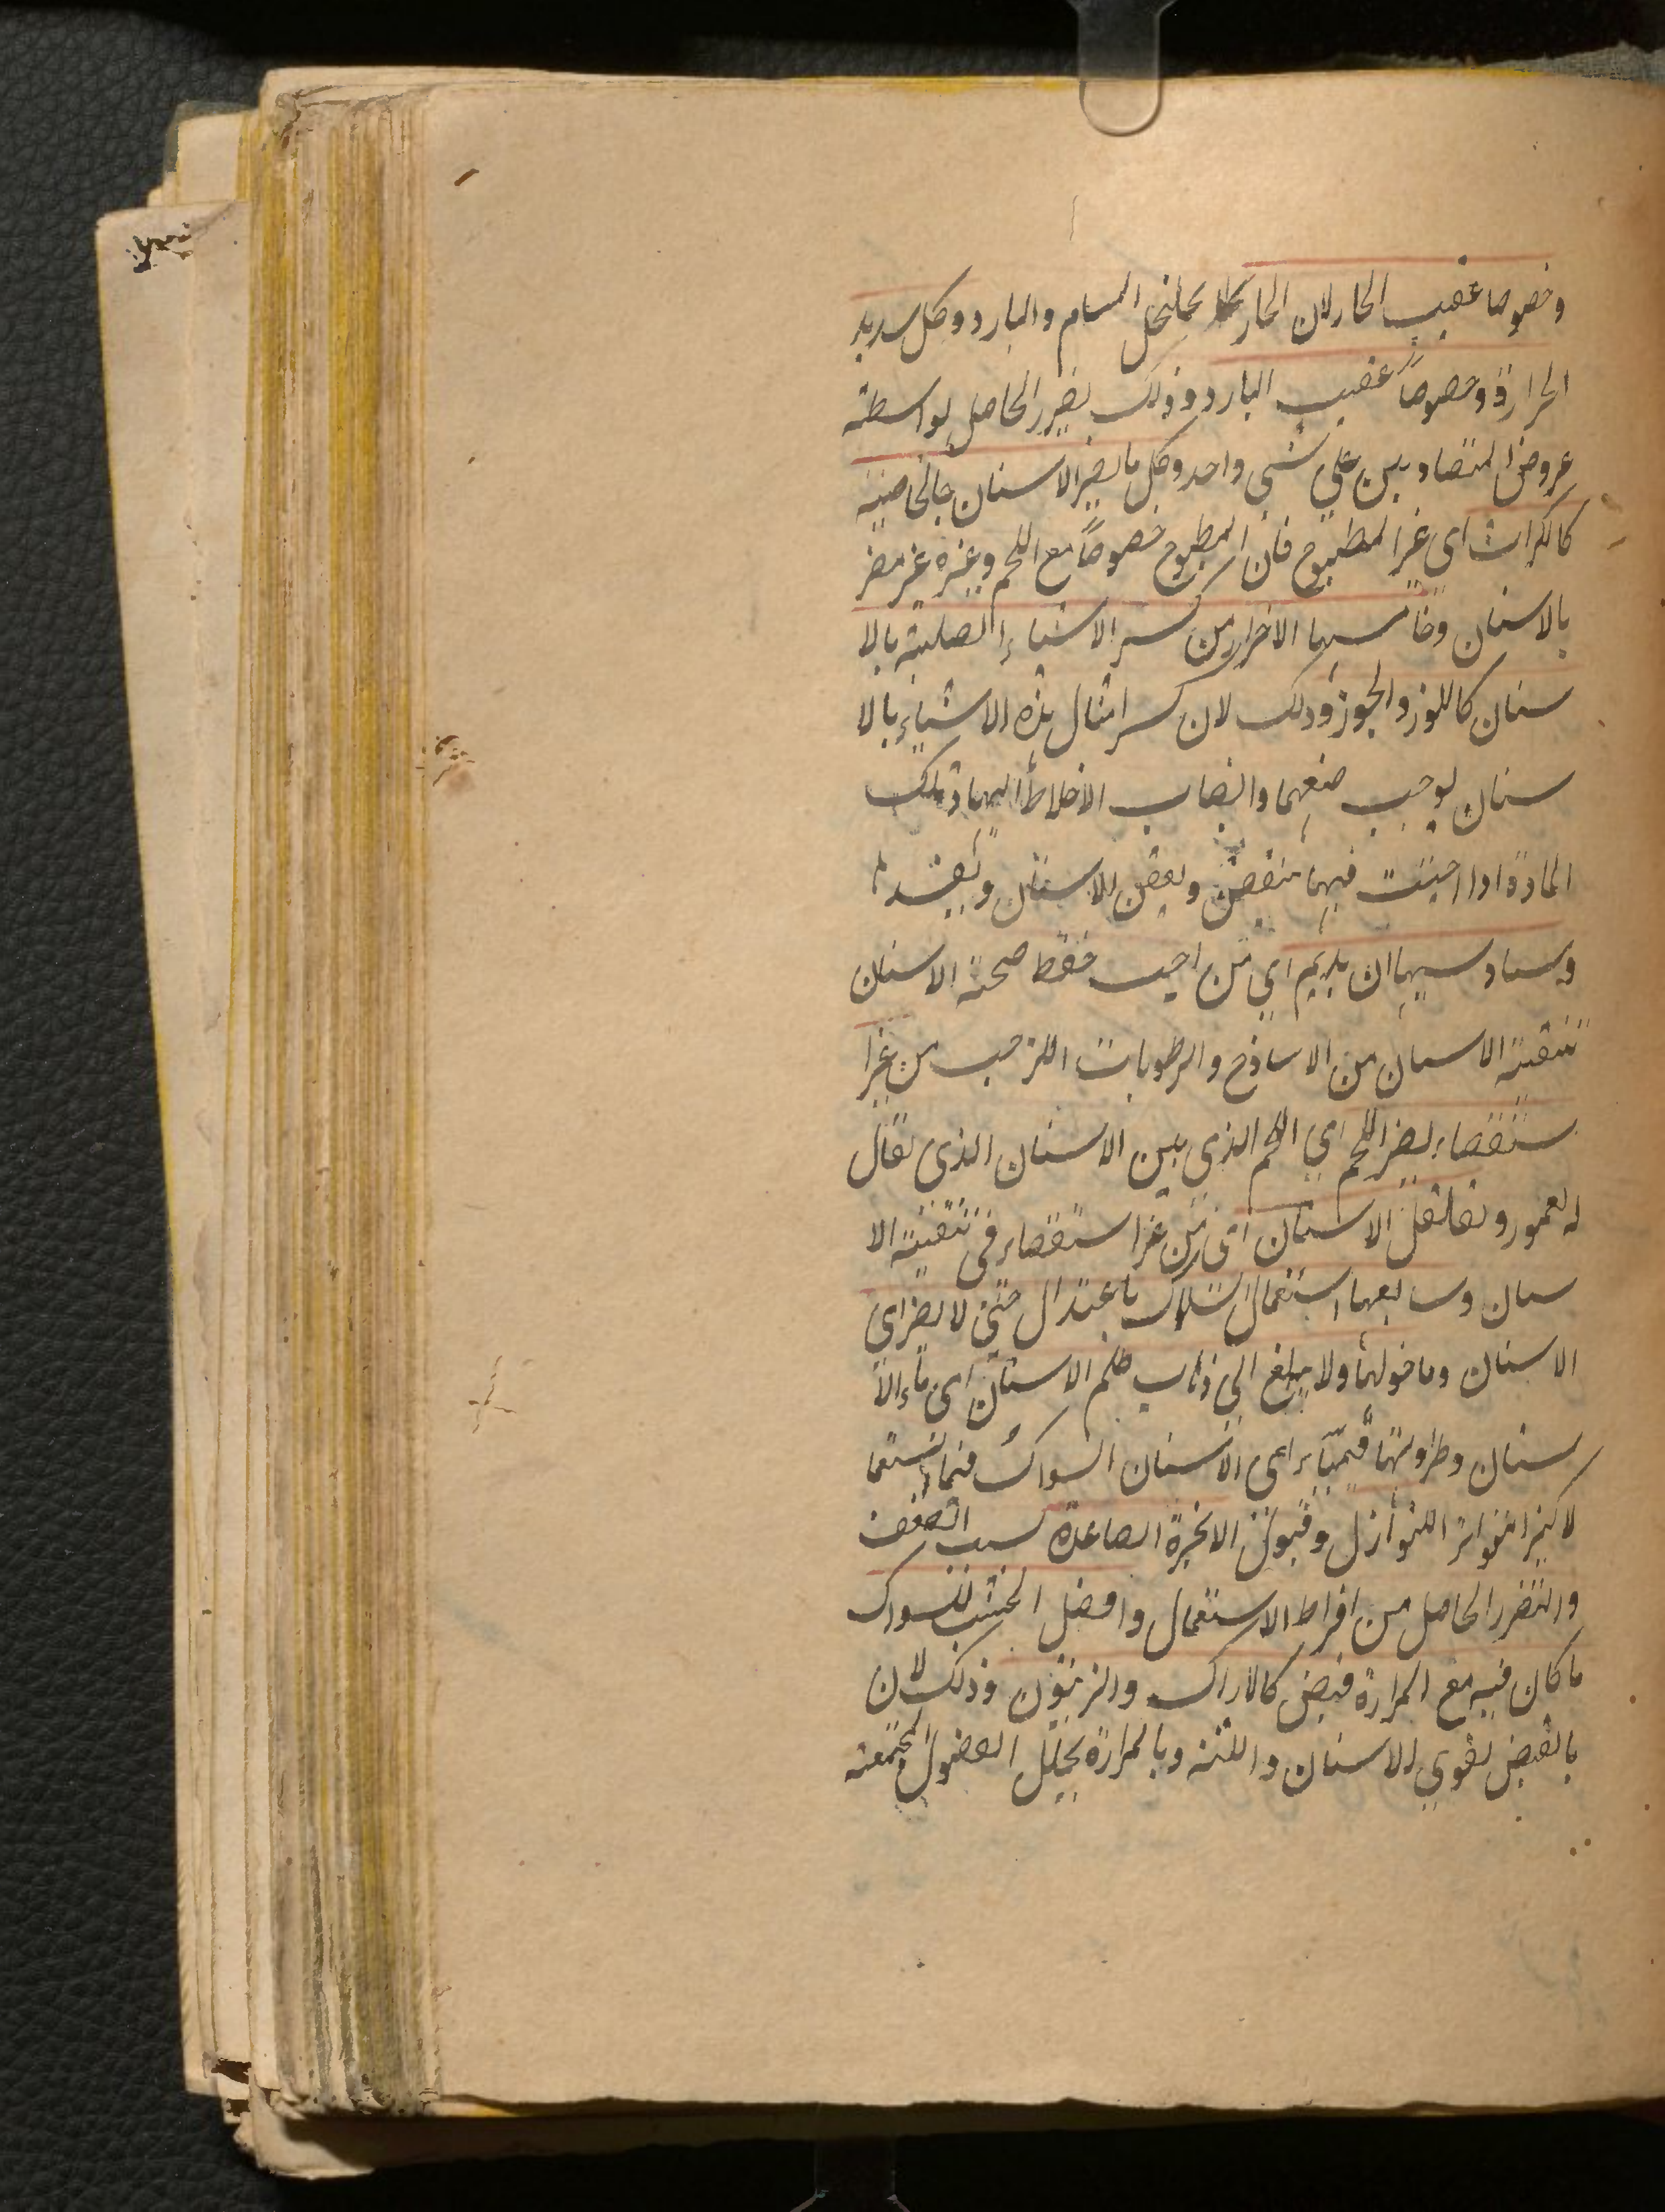 وخصوصا عقيب الحار لان الحار يخلخل المسام والبارد وكل شديد
الحرارة وخصوصاً عقيب البارد وذلك لضرر الحاصل بواسطة
عروض المتضادين على شي واحد وكل ما يضر الاسنان بالخاصية
كالكراث اى غير المطبوخ فان المطبوخ خصوصاً مع اللحم وغيره غير مضر
بالاسنان وخامسها الاحتراز من كسر الاشياء الصلبة بالا
سنان كاللوز والجوز وذلك لان كسر امثال هذه الاشياء بالا
سنان يوجب ضعفها وانصاب الاخلاط اليها وتلك
المادة اذا احتبست فيها تتعفن ويعفن الاسنان ويفسدها
وسادسها ان يديم اي من احب حفظ صحة الاسنان
تنقية الاسنان من الاساذح والرطوبات اللزجه من غير ا
ستقصاء يضر اللحم اي اللحم الذى بين الاسنان الذى يقال
له العمور وتقلقل الاسنان اى من غير استقصاء فى تنقية الا
سنان وسابعها استعمال السواك باعتدال حتى لا يضر اى
الاسنان وما حولها ولا يبلغ الى ذهاب ظلم الاسنان اى ماء الا
سنان وطراوتها فتهيأ اى الاسنان السواك فيما استعما
لا كثيرا لتواتر النوازل وقبول الابخرة الصاعدة بسبب الضعف
والتضرر الحاصل من افراط الاستعمال وافضل الخشب للسواك
ما كان فيه مع المرارة قبض كالاراك والزيتون وذلك لان
بالقبض يقوي الاسنان واللثة وبالمرارة يحلل الفضول المجتمعة